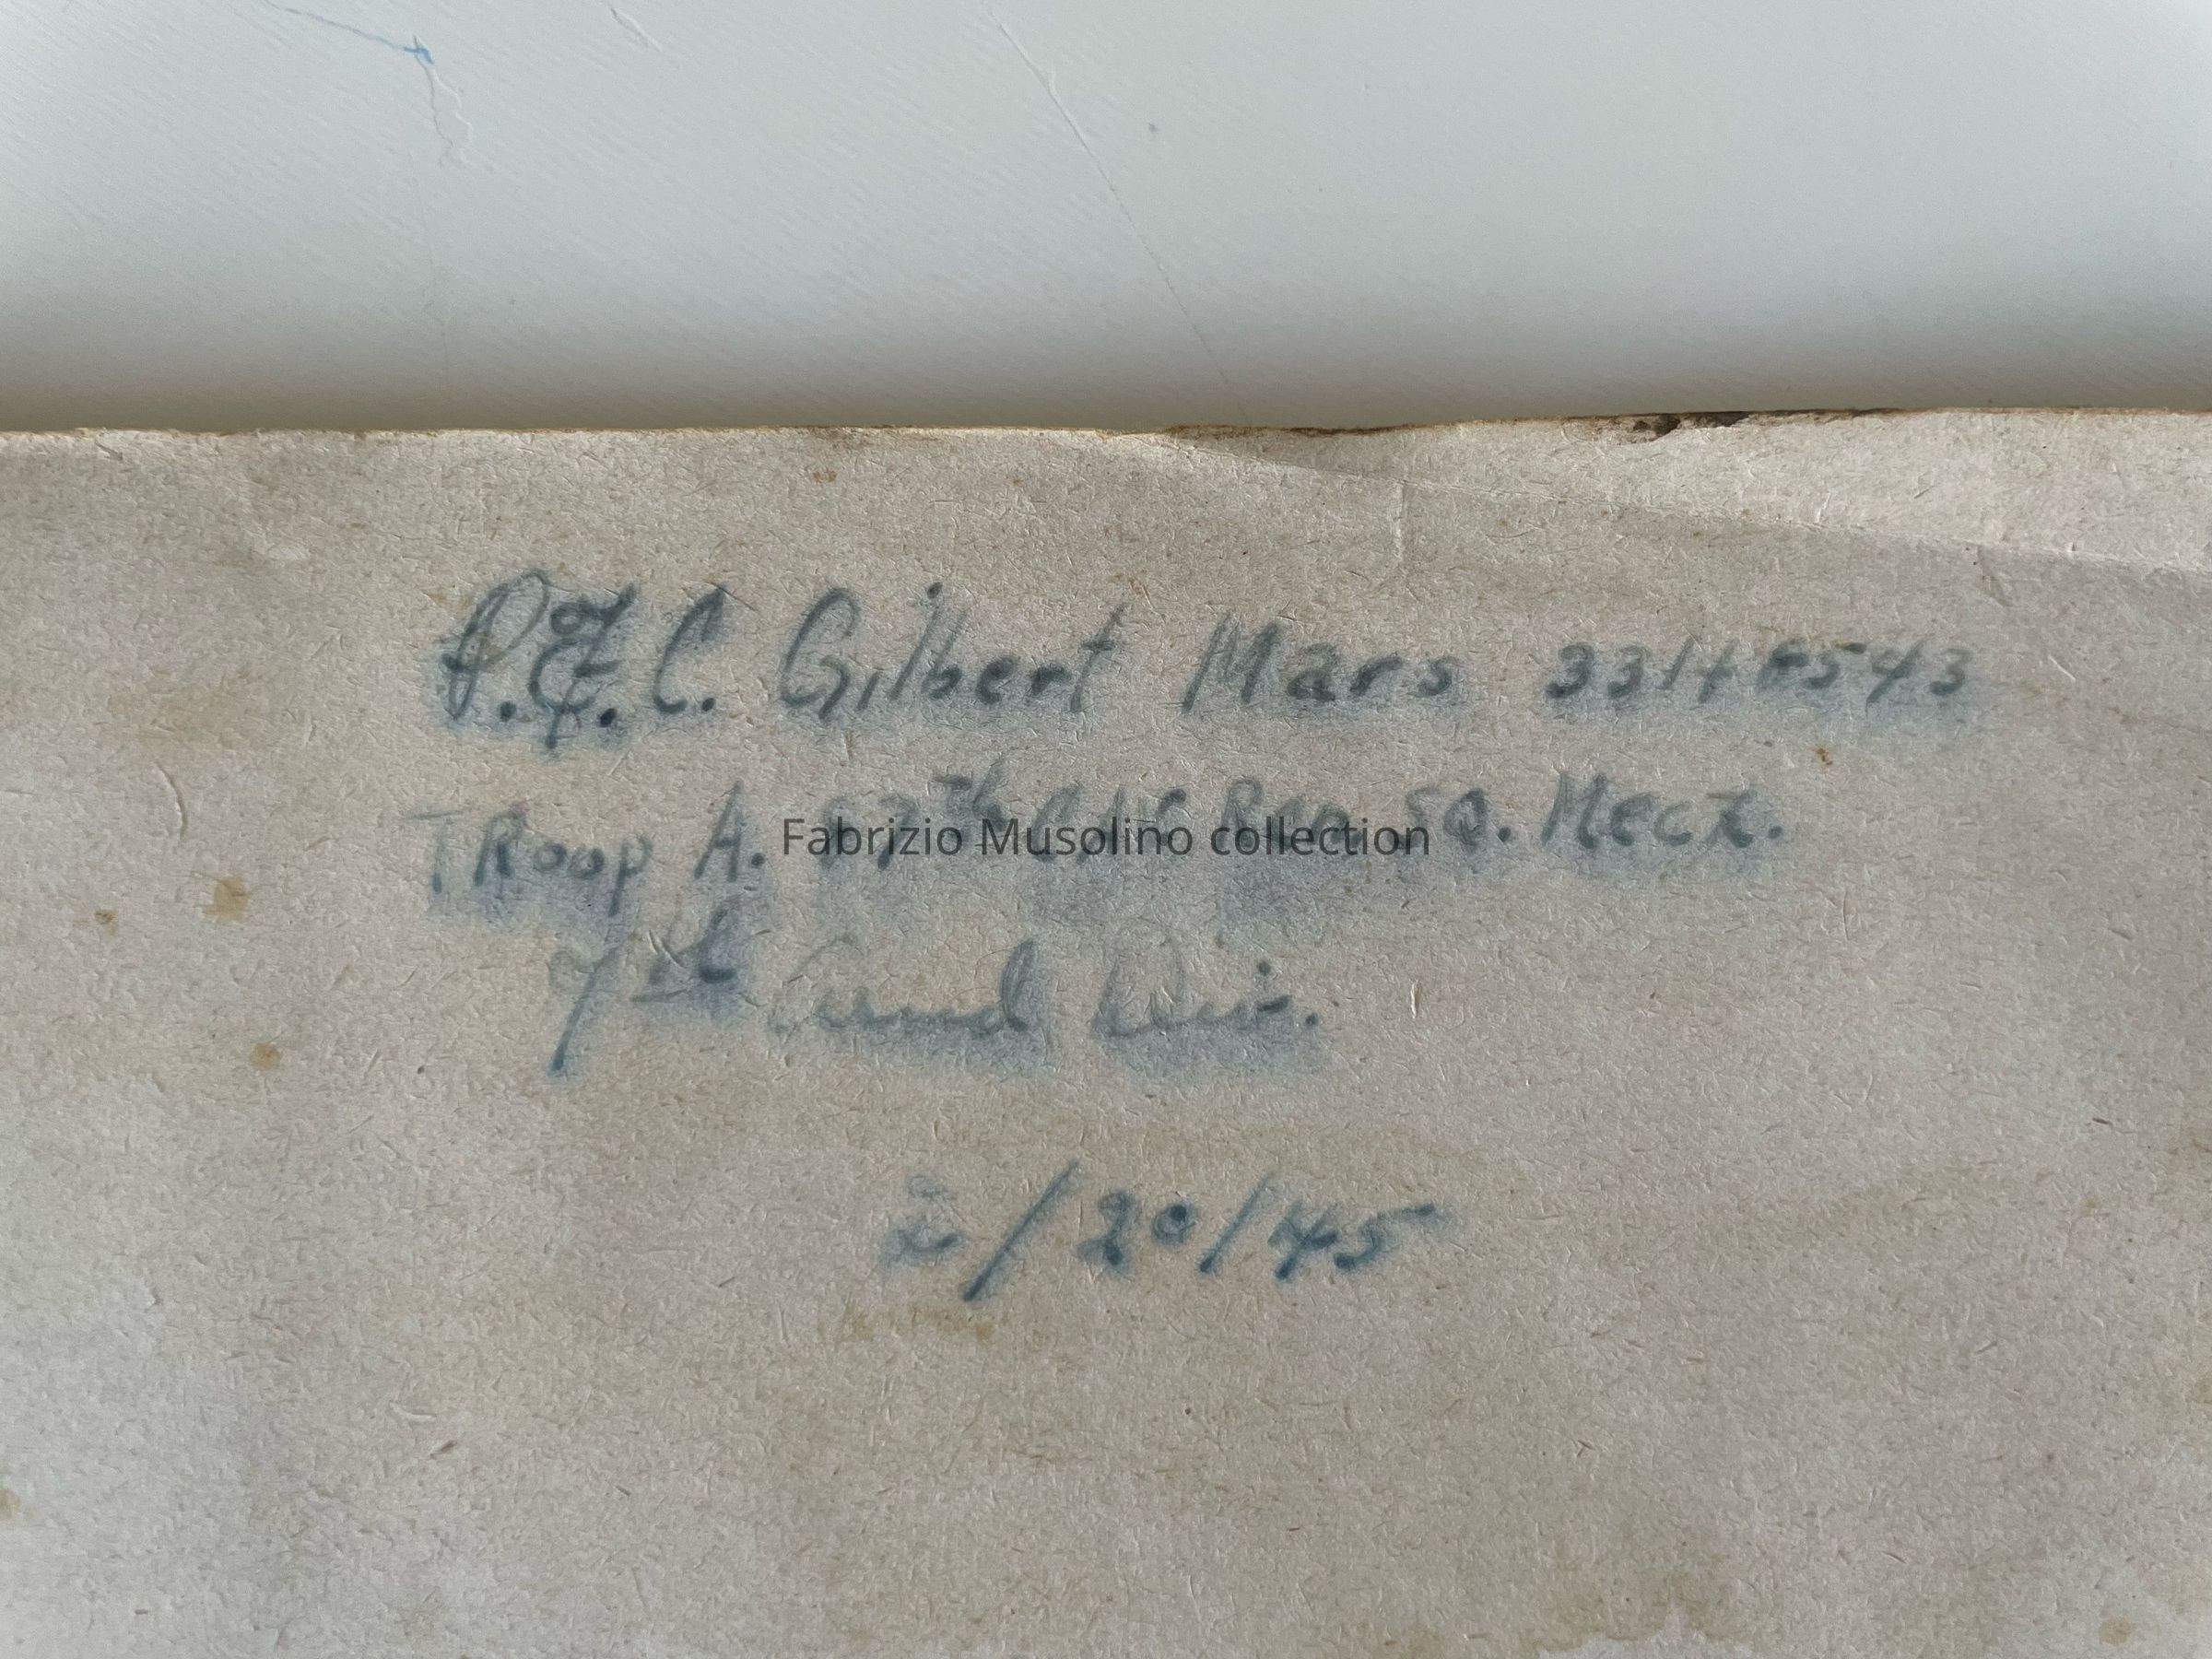 P.F.C. Gilbert Mars
TRoop A. 87th Sq. Mecz.
7th Armd Div.
2/20/45
Fabrizio Musolino collection